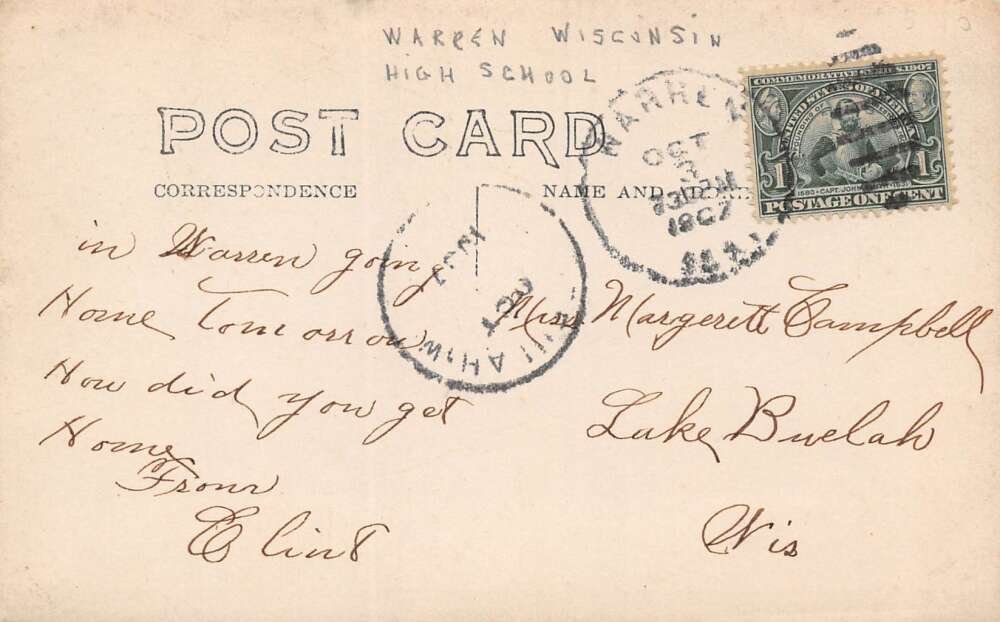 WARREN WISCONSIN
HIGH SCHOOL
POST CARD
CORRESPONDENCE
NAME AND ADDRE
COMMEMORATIVE SERIES, 1907
UNITED STATES OF AMERICA
1 1
1580 CAPT. JOHN SMITH 1631
POSTAGE ONE CENT
WARREN
OCT
3
1907
OCT
1907
in Warren going
Home Tomorrow
How did you get
Home
From
Clint
Miss Margerett Campbell
Lake Buelah
Wis